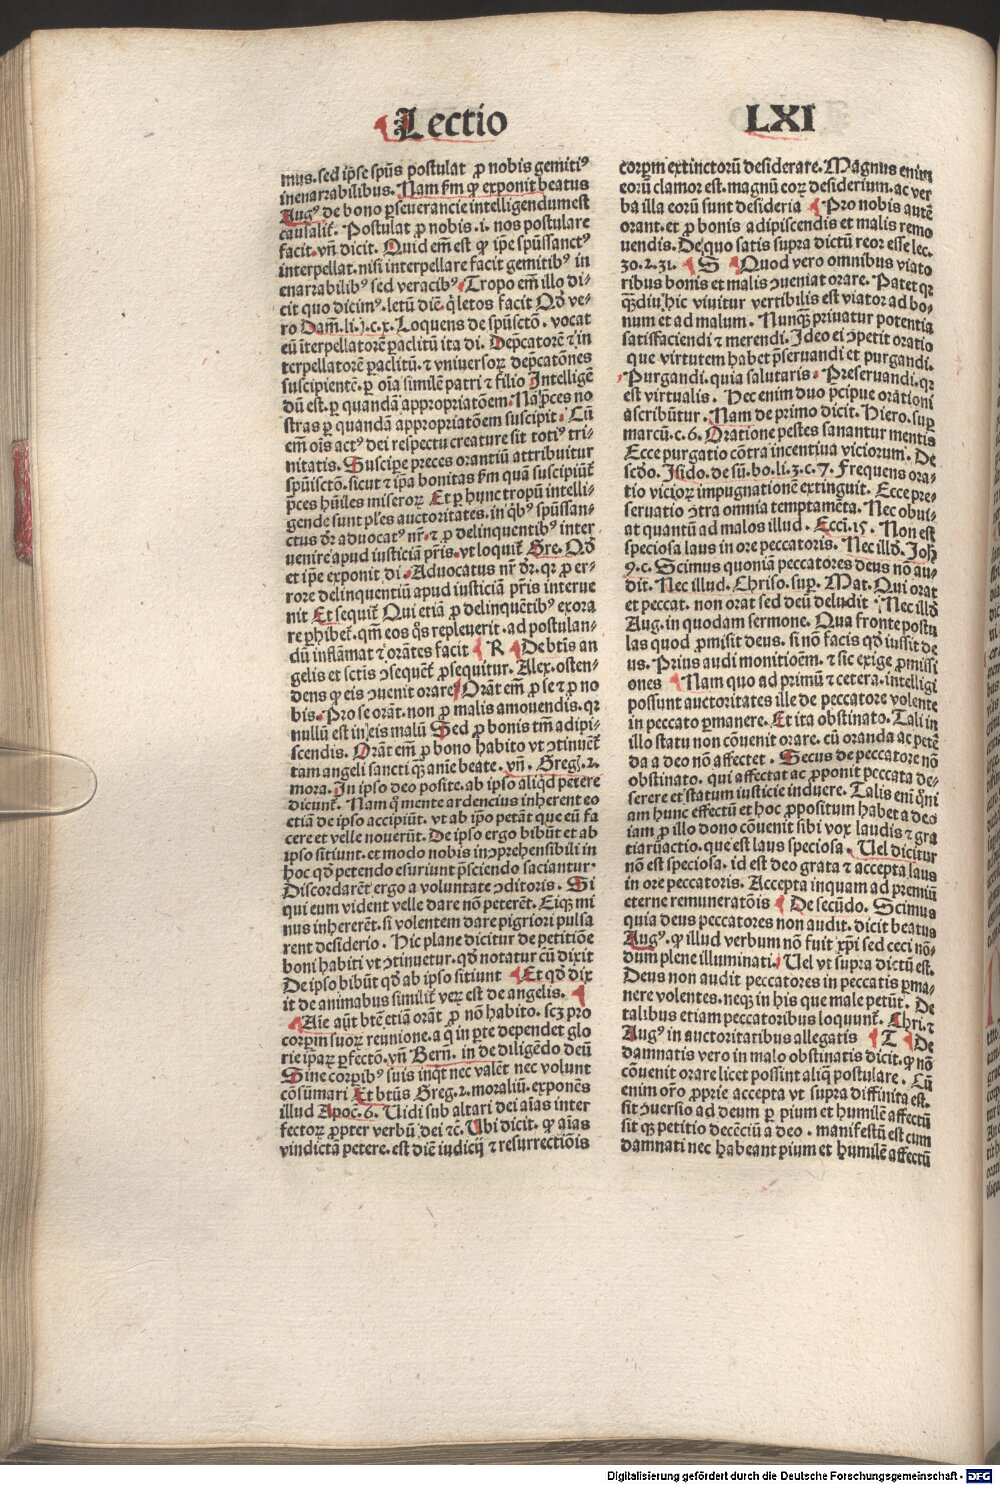 Lectio
LXI
mus. sed ip̄se spūs postulat ꝓ nobis gemitiꝰ
inenarrabilibus. Nam ẜm ꝙ exponit beatus
Augꝰ de bono ꝑseuerancie intelligendum est
causalit̄. Postulat ꝓ nobis .i. nos postulare
facit. vn̄ dicit. Quid em̄ est ꝙ ip̄e spūssanctꝰ
interpellat. nisi interpellare facit gemitibꝰ in
enarrabilibꝰ sed veracibꝰ Tropo em̄ illo di⸗
cit quo dicimꝰ. letū diē. q̇ letos facit Qd̄ ve⸗
ro Dam̄. li. ȷ. c. x. Loquens de spūsctō. vocat
eū īterpellatorē paclitū ita di. Dep̄catorē ⁊ in
terpellatorē paclitū. ⁊ vniuersoꝝ dep̄catōnes
suscipientē. ꝑ oīa similē patri ⁊ filio Intelligē
dū est. ꝑ quandā appropriatōem. Nā p̄ces no
stras ꝑ quandā appropriatōem suscipit. Cū
em̄ oīs actꝰ dei respectu creature sit totiꝰ tri⸗
nitatis. Suscipe preces orantiū attribuitur
spūisctō. sicut ⁊ ip̄a bonitas ẜm quā suscipiūt̄
p̄ces hūiles miseroꝝ Et ꝑ hunc tropū intelli⸗
gende sunt ples auctoritates. in q̇bꝰ spūssan⸗
ctus dr̄ aduocatꝰ nr̄. ⁊ ꝓ delinquentibꝰ inter
uenire apud iusticiā pr̄is. vt loquit̄ Gre. Qd̄
et ip̄e exponit di. Aduocatus nr̄ dr̄. qꝛ ꝓ er⸗
rore delinquentiū apud iusticiā pr̄is interue
nit Et sequit̄ Qui etiā ꝓ delinquētibꝰ exora
re ꝑhibet̄. qm̄ eos q̊s repleuerit. ad postulan⸗
dū inflāmat ⁊ orātes facit R De btīs an
gelis et sctīs ꝯsequēt̄ ꝓsequitur. Alex. osten⸗
dens ꝙ eis ꝯuenit orare Orāt em̄ ꝓ se ⁊ ꝓ no
bis. Pro se orāt. non ꝓ malis amouendis. qꝛ
nullū est in eis malū Sed ꝓ bonis tm̄ adipi⸗
scendis. Orāt em̄ ꝓ bono habito vt ꝯtinuēt̄
tam angeli sancti q̄ꝫ anīe beate. vn̄. Greg. 2.
mora. In ipso deo posite. ab ipso aliq̇d petere
dicunt̄. Nam q̇ mente ardencius inherent eo
etiā de ipso accipiūt. vt ab ipo petāt que eū fa
cere et velle nouerūt. De ipso ergo bibūt et ab
ipso sitiunt. et modo nobis incōprehensibili in
hoc qd̄ petendo esuriunt p̄sciendo saciantur.
Discordarēt ergo a voluntate ꝯditoris. Si
qui eum vident velle dare nō peterēt. Eiqꝫ mi
nus inhererēt. si volentem dare pigriori pulsa
rent desiderio. Hic plane dicitur de petitiōe
boni habiti vt ꝯtinuetur. qd̄ notatur cū dixit
De ipso bibūt qd̄ ab ipso sitiunt Et qd̄ dix
it de animabus similit̄ veꝝ est de angelis.
Aīe aūt btē etiā orāt ꝓ nō habito. scꝫ pro
corpm suoꝝ reunione. a q̊ in ꝑte dependet glo
rie ipaꝝ ꝑfectō. vn̄ Bern̄. in de diligēdo deū
Sine corpibꝰ suis inqt nec valēt nec volunt
cōsūmari Et btūs Greg. 2. moraliū. exponēs
illud Apoc. 6. Uidi sub altari dei aīas inter
fectoꝝ ꝓpter verbū dei ⁊c̄. Ubi dicit. ꝙ aīas
vindicta petere. est diē iudicij ⁊ resurrectiōis
corpm extinctorū desiderare. Magnus enim
eorū clamor est. magnū eoꝝ desiderium. ac ver
ba illa eorū sunt desideria Pro nobis autē
orant. et ꝓ bonis adipiscendis et malis remo
uendis. De quo satis supra dictū reor esse lec.
30. 2. 31. S Quod vero omnibus viato
ribus bonis et malis ꝯueniat orare. Patet qꝛ
q̄ꝫdiu hic viuitur vertibilis est viator ad bo⸗
num et ad malum. Nunq̄ꝫ priuatur potentia
satisfaciendi ⁊ merendi. Ideo ei ꝯpetit oratio
que virtutem habet p̄seruandi et purgandi.
Purgandi. quia salutaris. Preseruandi. qꝛ
est virtualis. Hec enim duo p̄cipue orationi
ascribūtur. Nam de primo dicit. Hiero. suꝑ
marcū. c. 6. Oratione pestes sanantur mentis
Ecce purgatio cōtra incentiua viciorum. De
scd̄o. Isido. de sū. bo. li. 3. c. 7. Frequens ora⸗
tio vicioꝝ impugnationē extinguit. Ecce pre⸗
seruatio ꝯtra omnia temptamēta. Nec obui⸗
at quantū ad malos illud. Ecci. 15. Non est
speciosa laus in ore peccatoris. Nec illd̄. Joh̄
9. c. Scimus quoniā peccatores deus nō au⸗
dit. Nec illud. Chriso. suꝑ. Mat. Qui orat
et peccat. non orat sed deū deludit Nec illd̄
Aug. in quodam sermone. Qua fronte postu
las quod ꝓmisit deus. si nō facis qd̄ iussit de
us. Prius audi monitioēm. ⁊ sic exige ꝓmissi
ones Nam quo ad primū ⁊ cetera. intelligi
possunt auctoritates ille de peccatore volente
in peccato ꝑmanere. Et ita obstinato. Tali in
illo statu non cōuenit orare. cū oranda ac petē
da a deo nō affectet. Secus de peccatore nō
obstinato. qui affectat ac ꝓponit peccata de⸗
serere et statum iusticie induere. Talis eni q̇ni
am hunc effectū et hoc ꝓpositum habet a deo
iam ꝓ illo dono cōuenit sibi vox laudis ⁊ gra
tiaꝝ actio. que est laus speciosa. Uel dicitur
nō est speciosa. id est deo grata ⁊ accepta laus
in ore peccatoris. Accepta inquam ad premiū
eterne remuneratōis De secūdo. Scimus
quia deus peccatores non audit. dicit beatus
Augꝰ. ꝙ illud verbum nō fuit xp̄i sed ceci nō⸗
dum plene illuminati. Uel vt supra dictū est.
Deus non audit peccatores in peccatis ꝑma⸗
nere volentes. neqꝫ in his que male petūt. De
talibus etiam peccatoribus loquunt̄. Chri. ⁊
Augꝰ in auctoritatibus allegatis T De
damnatis vero in malo obstinatis dicit. ꝙ nō
cōuenit orare licet possint aliq̄ postulare. Cū
enim or̄o ꝓprie accepta vt supra diffinita est.
sit ꝯuersio ad deum ꝑ pium et humilē affectū
sit qꝫ petitio decēciū a deo. manifestū est cum
damnati nec habeant pium et humilē affectū
Digitalisierung gefördert durch die Deutsche Forschungsgemeinschaft - DFG